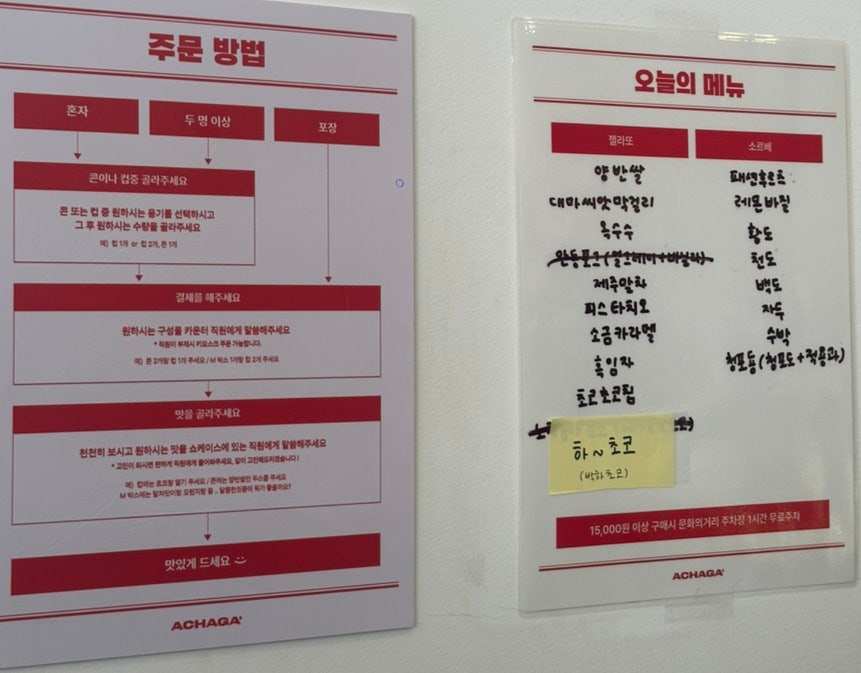 주문 방법
혼자
두 명 이상
포장
콘이나 컵중 골라주세요
콘 또는 컵 중 원하시는 용기를 선택하시고
그 후 원하시는 수량을 골라주세요
예) 컵 1개 or 컵 2개, 콘 1개
결제를 해주세요
원하시는 구성을 카운터 직원에게 말씀해주세요
* 직원이 부재시 키오스크 주문 가능합니다.
예) 콘 2개랑 컵 1개 주세요 / M 박스 1개랑 컵 2개 주세요
맛을 골라주세요
천천히 보시고 원하시는 맛을 쇼케이스에 있는 직원에게 말씀해주세요
* 고민이 되시면 편하게 직원에게 물어봐주세요, 같이 고민해드리겠습니다!
예) 컵에는 초코랑 딸기 주세요 / 콘에는 양반쌀만 두스쿱 주세요
M 박스에는
맛있게 드세요
ACHAGA
오늘의 메뉴
젤라또
양반쌀
대마씨앗막걸리
옥수수
제주말차
피스타치오
소금카라멜
흑임자
초코초코칩
하~초코
(박하초코)
소르베
패션후르츠
레몬바질
황도
천도
백도
자두
수박
청포용(청포도+적용과)
15,000원 이상 구매시 문화의거리 주차장 1시간 무료주차
ACHAGA